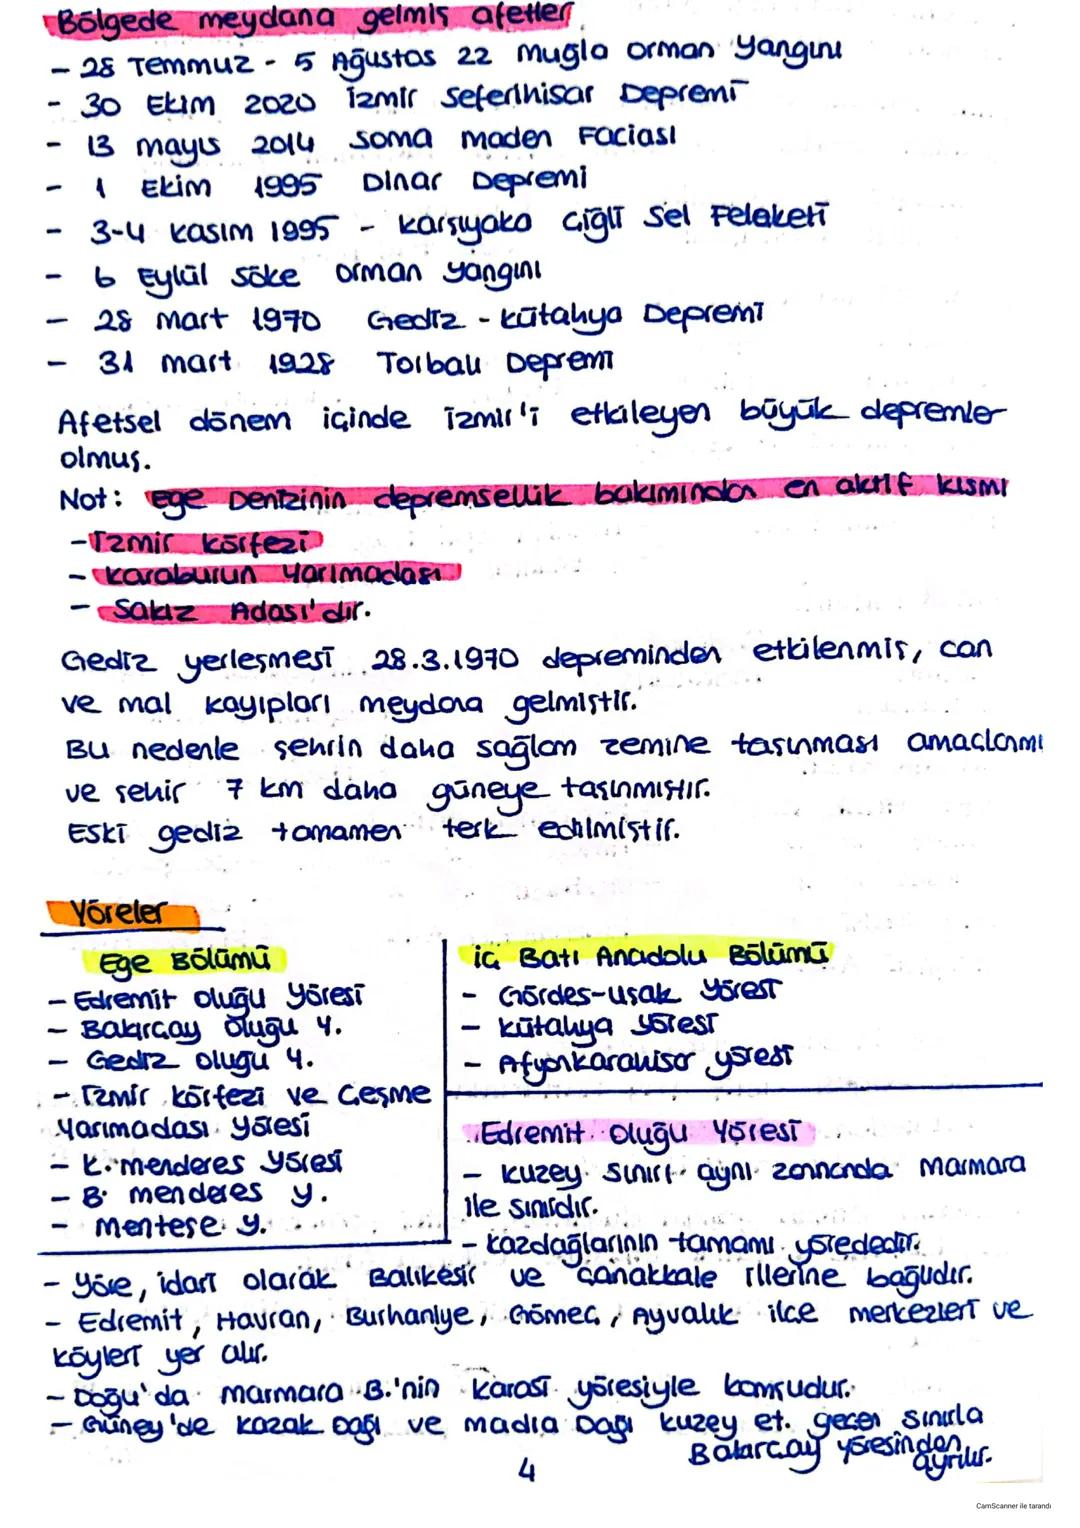 Bölgede meydana gelmiş afetler
- 28 Temmuz - 5 Ağustos 22 Muğla orman Yangını
- 30 Ekim 2020 İzmir Seferihisar Depremi
- 13 mayıs 2014 Soma maden Faciası
- 1 Ekim 1995 Dinar Depremi
- 3-4 kasım 1995 - Karşıyaka Çiğli Sel Felaketi
- 6 Eylül Söke orman yangını
- 28 Mart 1970 Gediz - Kütahya Depremi
- 31 mart 1928 Torbalı Depremi
Afetsel dönem içinde İzmir'i etkileyen büyük depremler
olmuş.
Not: Ege Denizinin depremsellik bakımından en aktif kısmı
- İzmir körfezi
- Karaburun Yarımadası
- Sakız Adası'dır.
Gediz yerleşmesi 28.3.1970 depreminden etkilenmiş, can
ve mal kayıpları meydana gelmiştir.
Bu nedenle şehrin daha sağlam zemine taşınması amaçlanmı
ve şehir 7 km daha güneye taşınmıştır.
Eski gediz tamamen terk edilmiştir.
Yöreler
Ege Bölümü
- Edremit oluğu Yöresi
- Bakırçay oluğu Y.
- Gediz oluğu Y.
- İzmir körfezi ve Çeşme
Yarımadası yöresi
- K. menderes yöresi
- B. menderes y.
- Menteşe y.
İç Batı Anadolu Bölümü
- Gördes-Uşak Yöresi
- Kütahya yöresi
- Afyonkarahisar yöresi
Edremit Oluğu Yöresi
- Kuzey sınırı aynı zamanda Marmara
ile sınırdır.
- Kazdağlarının tamamı yörededir.
- Yöre, idari olarak Balıkesir ve Çanakkale illerine bağlıdır.
- Edremit, Havran, Burhaniye, Gömeç, Ayvalık ilçe merkezleri ve
köyleri yer alır.
- Doğu'da Marmara B.'nin Karasi yöresiyle komşudur.
- Güney'de Kozak Dağı ve Madra Dağı kuzey et. geçen sınırla
Bakırçay yöresinden
ayrılır.
4
CamScanner ile tarandı